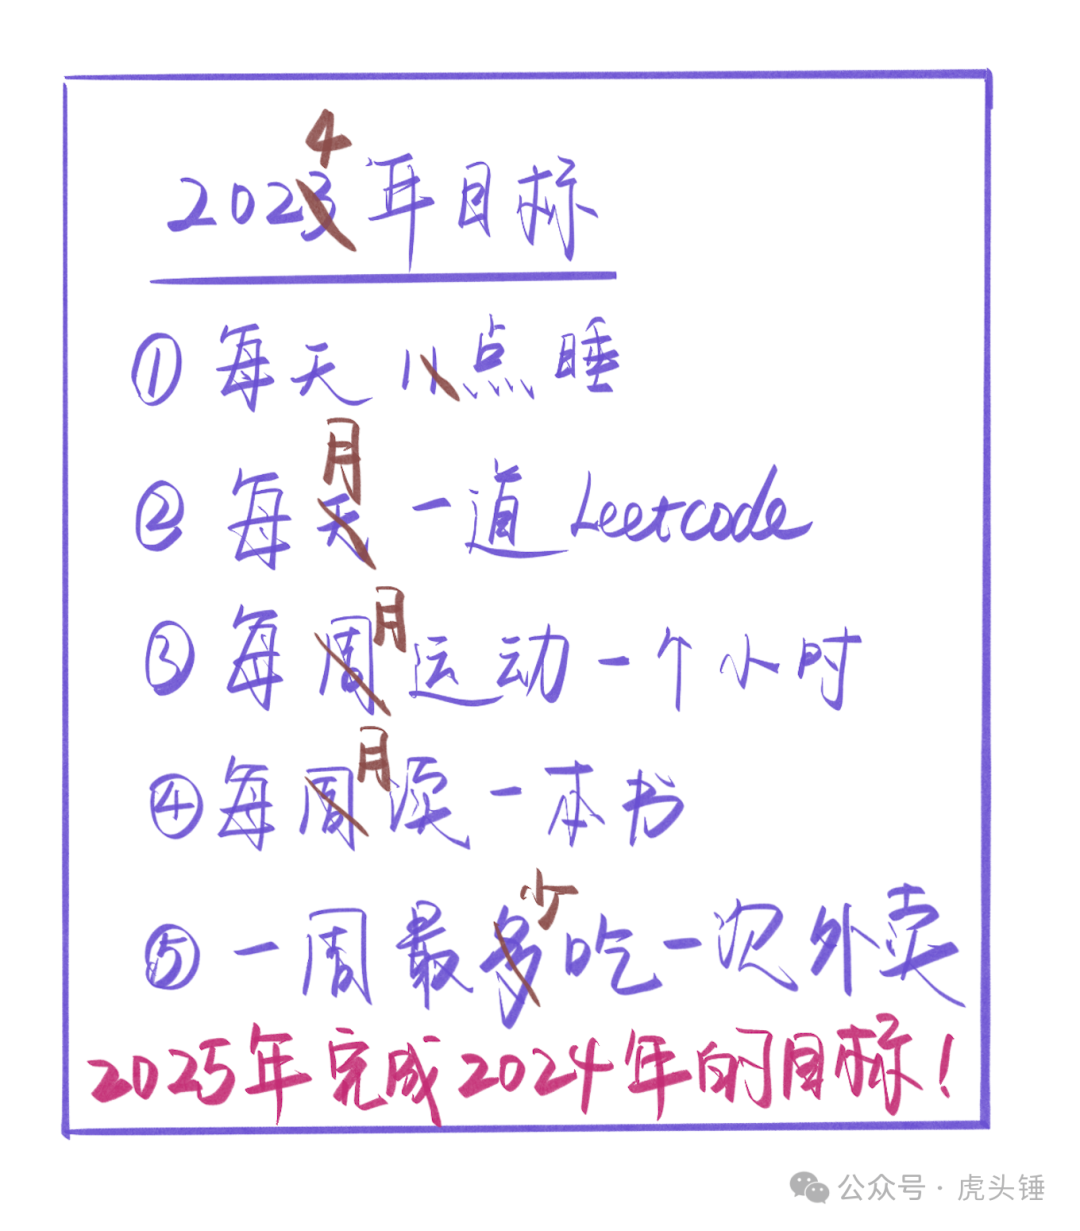 4
2023年目标
① 每天 11点睡
月
② 每天 一道 Leetcode
月
③ 每周运动一个小时
月
④ 每周读一本书
少
⑤ 一周最多吃一次外卖
2025年完成2024年的目标！
公众号 · 虎头锤